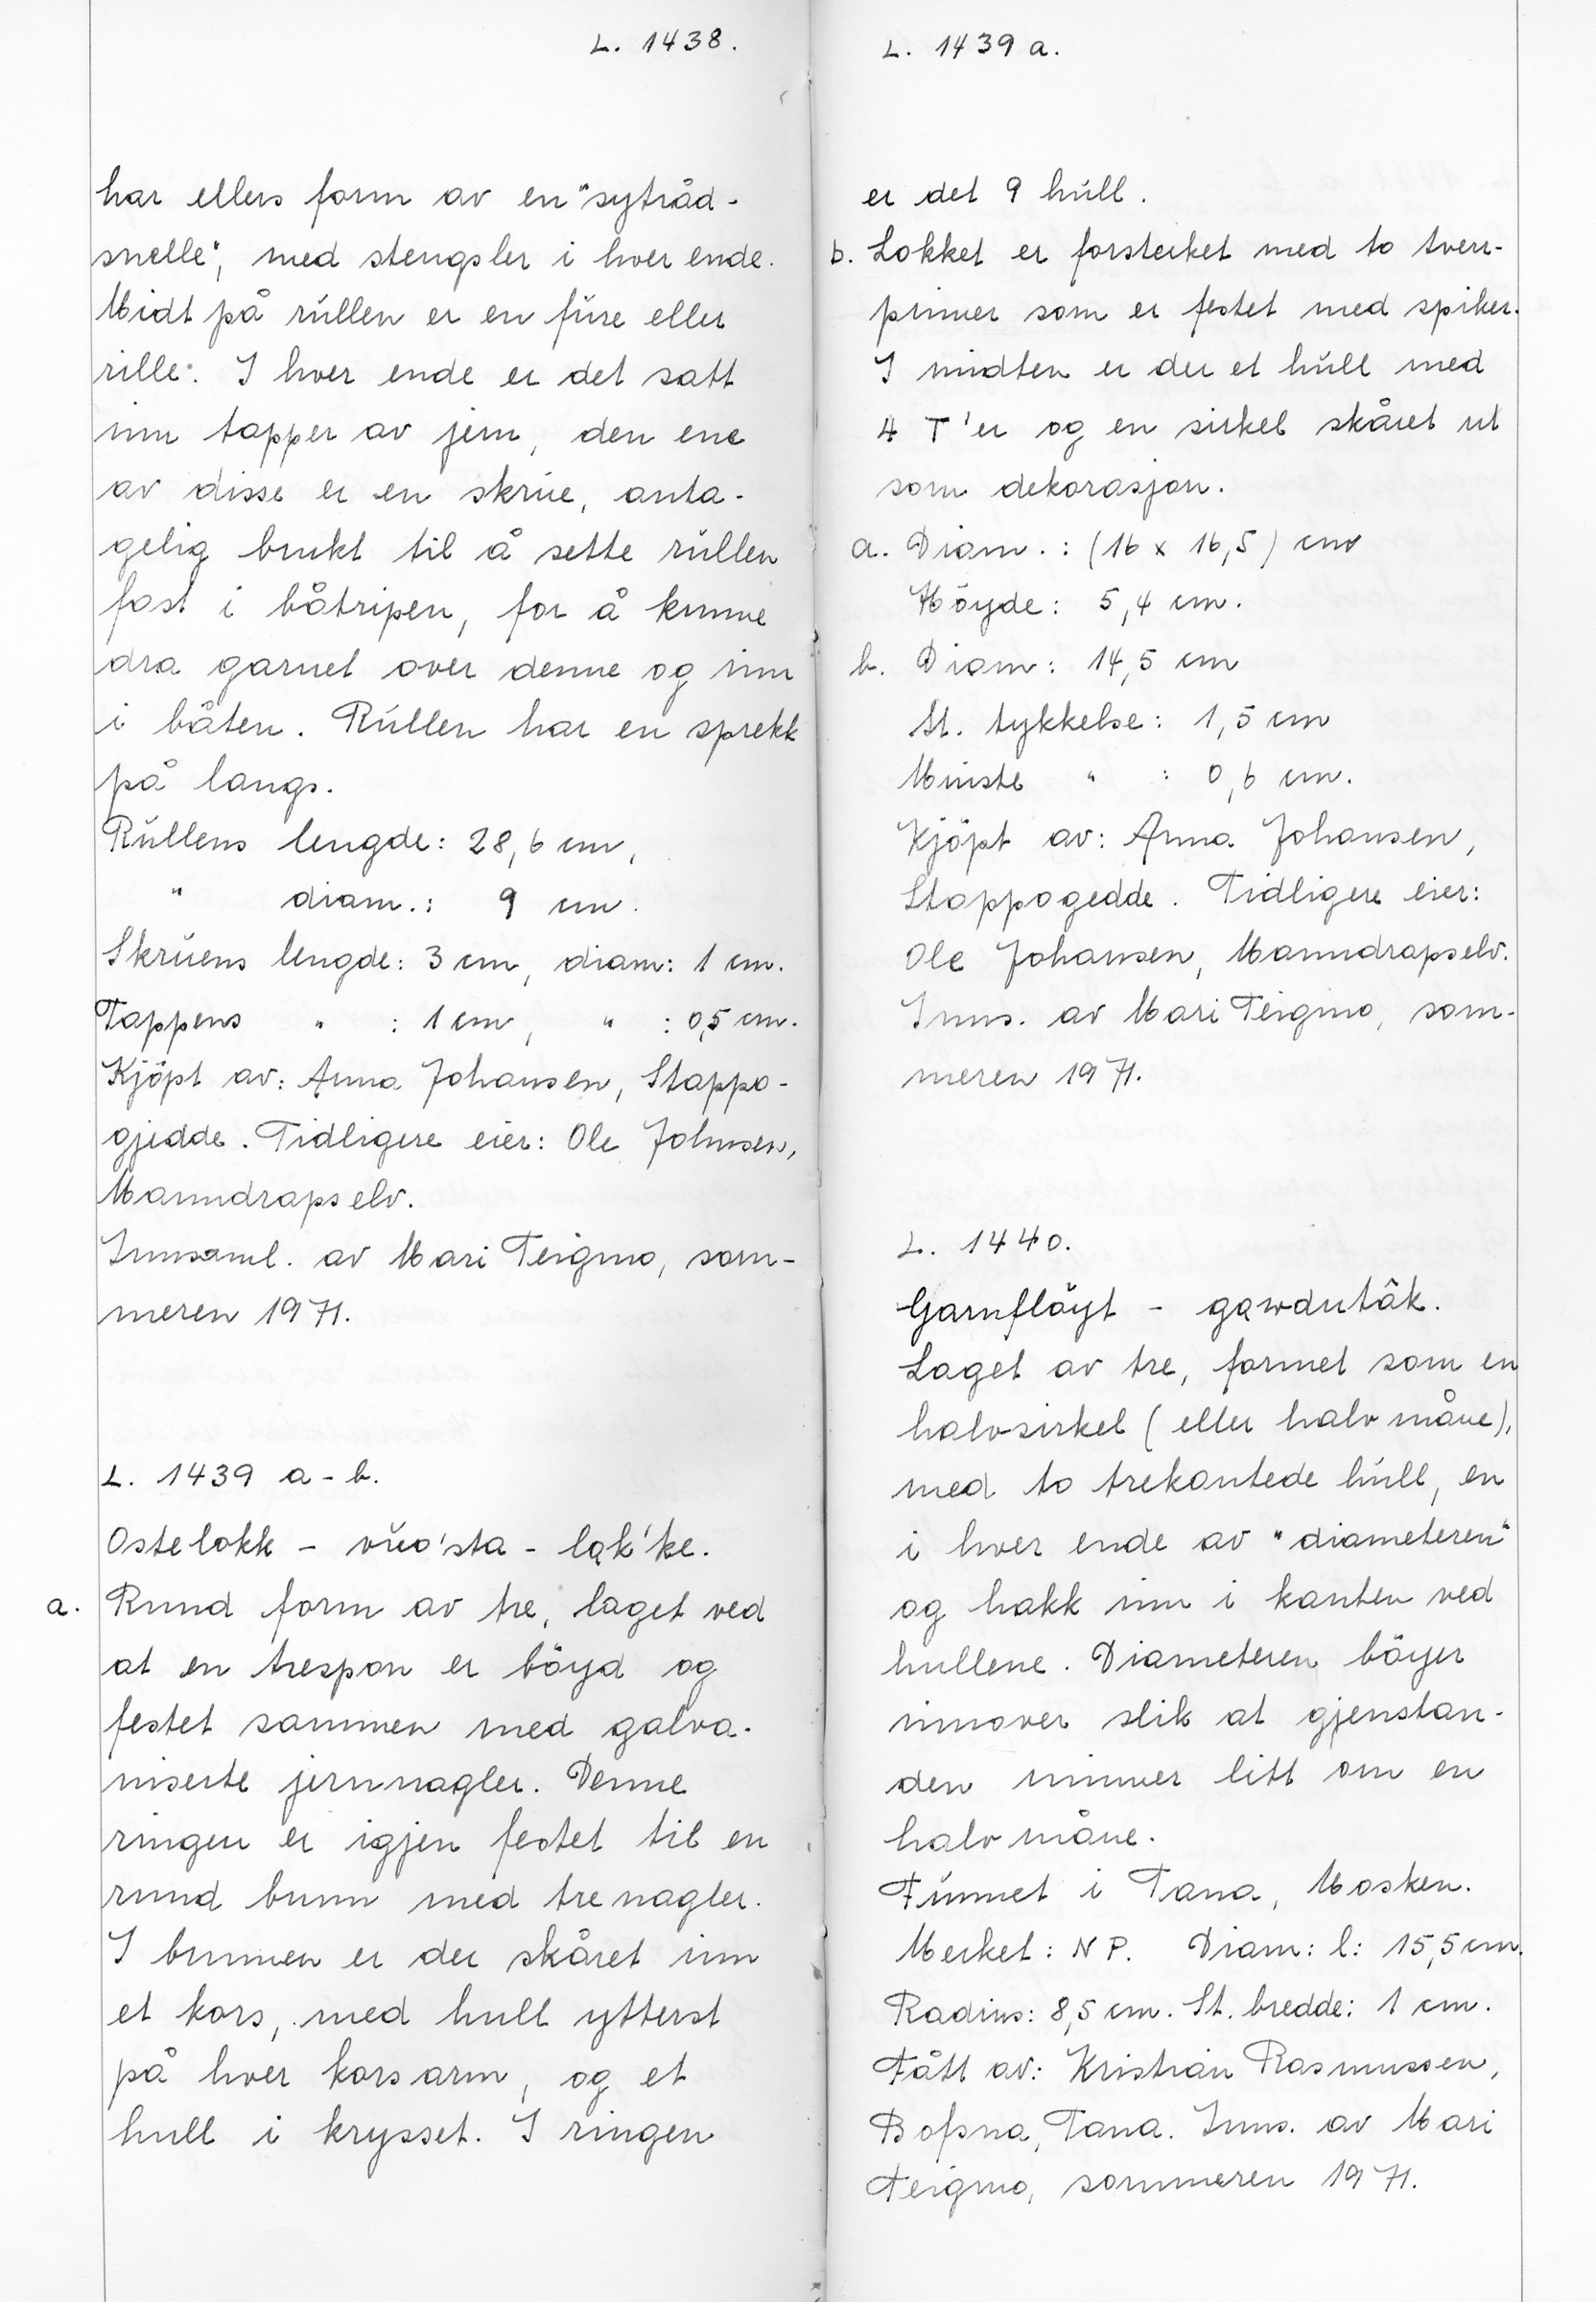 L. 1438.
har ellers form av en "sytråd-
snelle", med stengsler i hver ende.
Midt på rullen er en fure eller
rille. I hver ende er det satt
inn tapper av jern, den ene
av disse er en skrue, anta-
gelig brukt til å sette rullen
fast i båtripen, for å kunne
dra garnet over denne og inn
i båten. Rullen har en sprekk
på langs.
Rullens lengde: 28,6 cm,
" diam.: 9 cm.
Skruens lengde: 3 cm, diam: 1 cm.
Tappens " : 1 cm, " : 0,5 cm.
Kjöpt av: Anna Johansen, Stappo-
gjedde. Tidligere eier: Ole Johnsen,
Manndrapselv.
Innsaml. av Mari Teigmo, som-
meren 1971.
L. 1439 a-b.
Ostelokk - vŭo'sta - ląk'ke.
a. Rund form av tre, laget ved
at en trespon er böyd og
festet sammen med galva-
niserte jernnagler. Denne
ringen er igjen festet til en
rund bunn med trenagler.
I bunnen er der skåret inn
et kors, med hull ytterst
på hver korsarm, og et
hull i krysset. I ringen
L. 1439 a.
er det 9 hull.
b. Lokket er forsterket med to tverr-
pinner som er festet med spiker.
I midten er der et hull med
4 T'er og en sirkel skåret ut
som dekorasjon.
a. Diam.: (16 x 16,5) cm
Höyde: 5,4 cm.
b. Diam: 14,5 cm
St. tykkelse: 1,5 cm
Minste " : 0,6 cm.
Kjöpt av: Anna Johansen,
Stappogedde. Tidligere eier:
Ole Johansen, Manndrapselv.
Inns. av Mari Teigmo, som-
meren 1971.
L. 1440.
Garnflöyt - gąwdutâk.
Laget av tre, formet som en
halvsirkel (eller halvmåne),
med to trekantede hull, en
i hver ende av "diameteren"
og hakk inn i kanten ved
hullene. Diameteren böyer
innover slik at gjenstan-
den minner litt om en
halvmåne.
Funnet i Tana, Mosken.
Merket: N P. Diam: l: 15,5 cm.
Radius: 8,5 cm. St. bredde: 1 cm.
Fått av: Kristian Rasmussen,
Bofsna, Tana. Inns. av Mari
Teigmo, sommeren 1971.